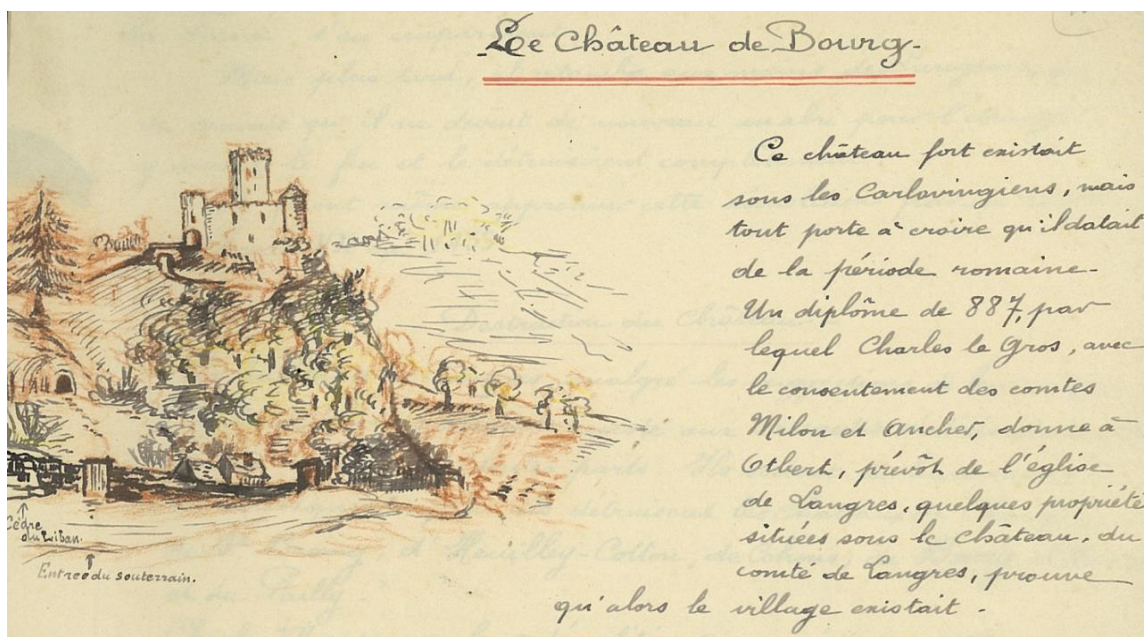 Le Château de Bourg.
Ce château fort existait
sous les Carlovingiens, mais
tout porte à croire qu'il datait
de la période romaine.
Un diplôme de 887, par
lequel Charles le Gros, avec
le consentement des comtes
Milon et Ancher, donne à
Otbert, prévôt de l'église
de Langres, quelques propriété
situées sous le Château, du
comté de Langres, prouve
qu'alors le village existait.
Cèdre
du Liban.
Entrée du souterrain.